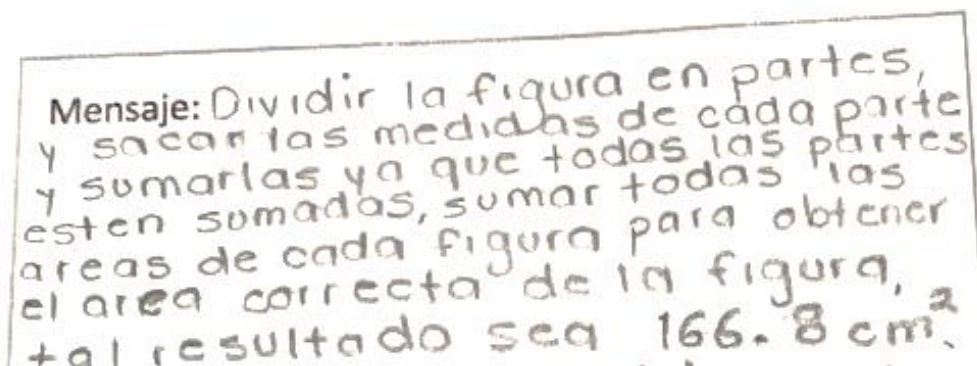 Mensaje: Dividir la figura en partes,
y sacar las medidas de cada parte
y sumarlas ya que todas las partes
esten sumadas, sumar todas las
areas de cada figura para obtener
el area correcta de la figura,
tal resultado sea 166.8 cm².